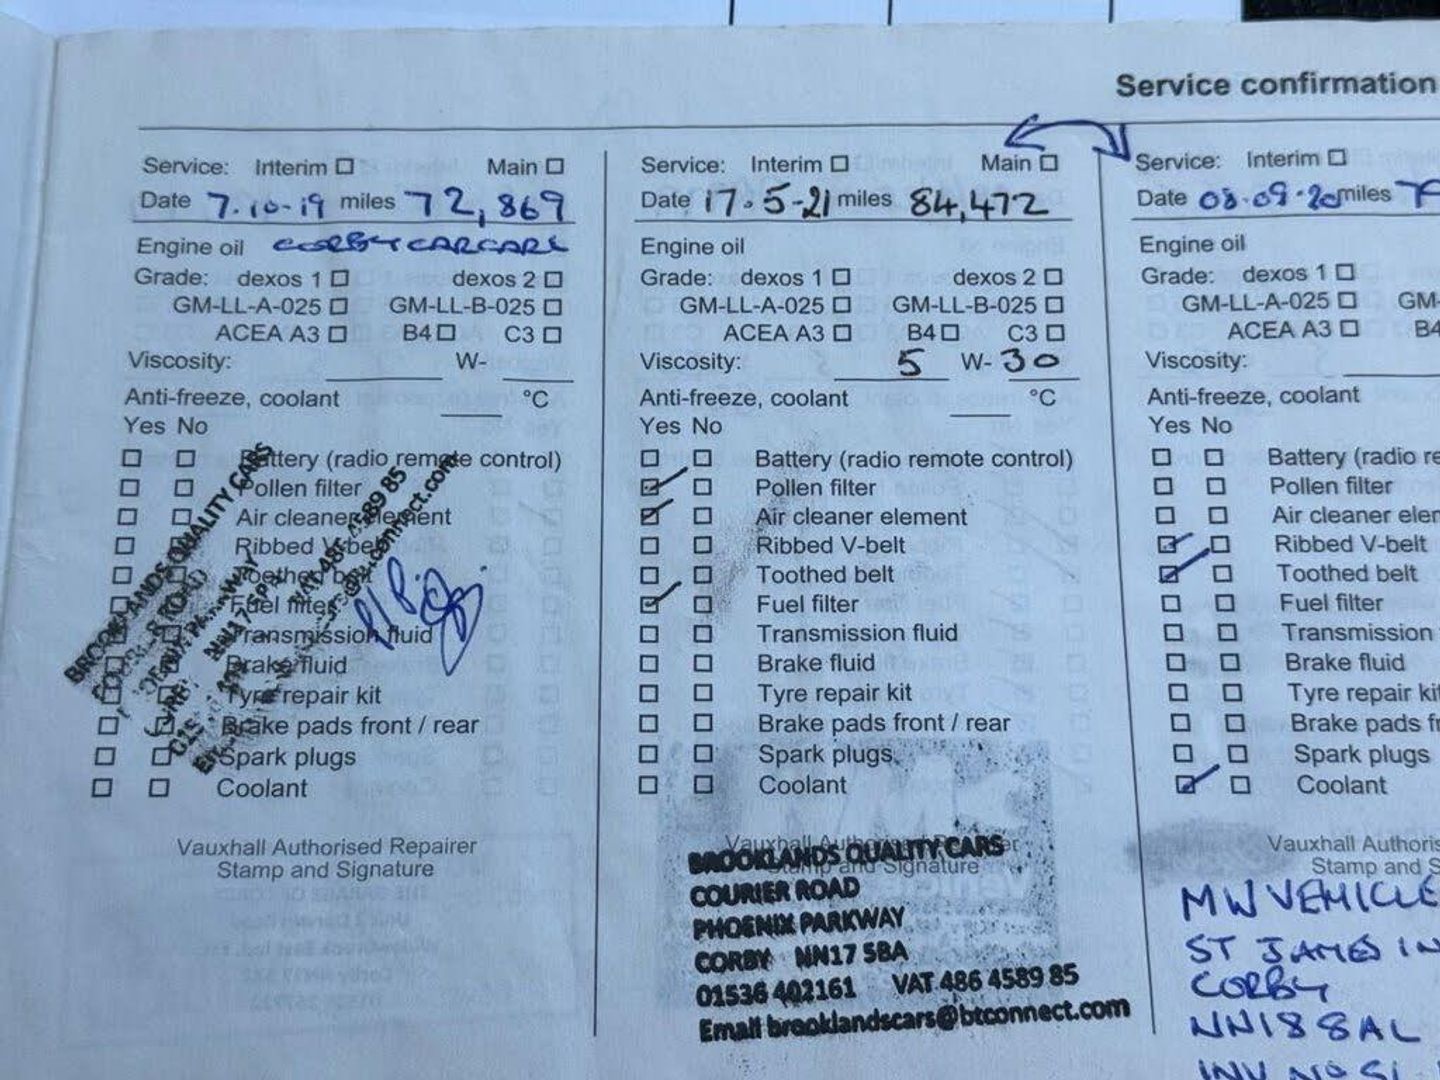 Service confirmation
Service: Interim Main
Date 7.10-19 miles 72,869
Engine oil CORBY CARCARE
Grade: dexos 1 dexos 2
GM-LL-A-025 GM-LL-B-025
ACEA A3 B4 C3
Viscosity: W-
Anti-freeze, coolant °C
Yes No
Battery (radio remote control)
Pollen filter
Air cleaner element
Ribbed V-belt
Toothed belt
Fuel filter
Transmission fluid
Brake fluid
Tyre repair kit
Brake pads front / rear
Spark plugs
Coolant
BROOKLANDS QUALITY CARS
Vauxhall Authorised Repairer
Stamp and Signature
Service: Interim Main
Date 17.5-21 miles 84,472
Engine oil
Grade: dexos 1 dexos 2
GM-LL-A-025 GM-LL-B-025
ACEA A3 B4 C3
Viscosity: 5 W- 30
Anti-freeze, coolant °C
Yes No
Battery (radio remote control)
Pollen filter
Air cleaner element
Ribbed V-belt
Toothed belt
Fuel filter
Transmission fluid
Brake fluid
Tyre repair kit
Brake pads front / rear
Spark plugs
Coolant
Vauxhall Authorised Repairer
Stamp and Signature
BROOKLANDS QUALITY CARS
COURIER ROAD
PHOENIX PARKWAY
CORBY NN17 5BA
01536 402161 VAT 486 4589 85
Email brooklandscars@btconnect.com
Service: Interim
Date 08.09.20 miles 79
Engine oil
Grade: dexos 1
GM-LL-A-025 GM-
ACEA A3 B4
Viscosity:
Anti-freeze, coolant
Yes No
Battery (radio re
Pollen filter
Air cleaner elem
Ribbed V-belt
Toothed belt
Fuel filter
Transmission
Brake fluid
Tyre repair kit
Brake pads fr
Spark plugs
Coolant
Vauxhall Authoris
Stamp and S
MW VEHICLE
ST JAMES IN
CORBY
NN18 8AL